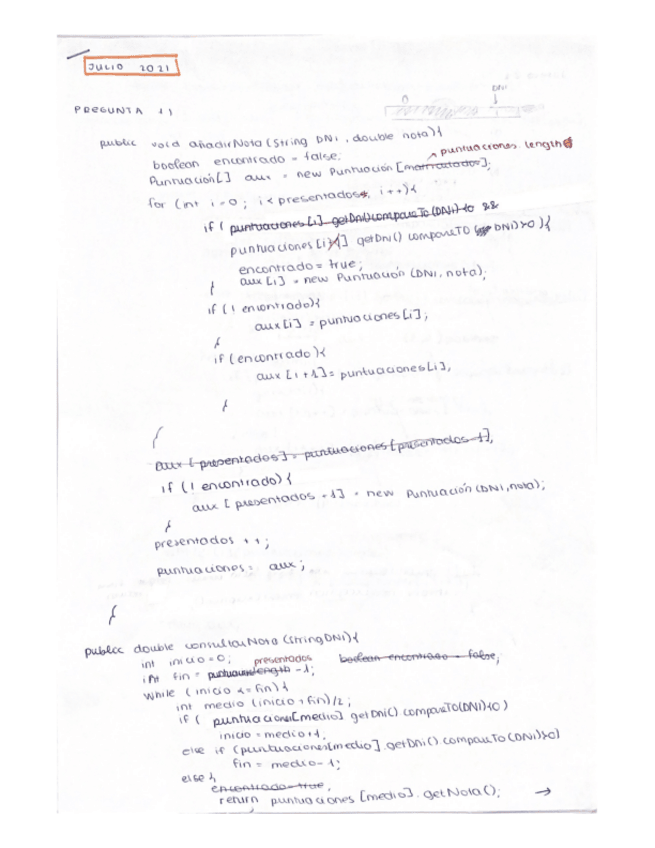 JULIO 2021
PREGUNTA 1)
0 DNI
public void añadirNota (String DNI, double nota){
boolean encontrado = false;
puntuaciones.length
Puntuación[] aux = new Puntuación [matriculados];
for (int i = 0; i < presentados, i++){
if ( puntuaciones [i] getDni() compareTo (DNI) <0 &&
puntuaciones [i] getDni() compareTo DNI) >0 ){
encontrado = true;
aux [i] = new Puntuación (DNI, nota);
}
if (! encontrado){
aux [i] = puntuaciones [i];
}
if (encontrado){
aux [i + 1] = puntuaciones [i],
}
}
aux [ presentados] = puntuaciones [presentados -1],
if (! encontrado) {
aux [ presentados -1] = new Puntuación (DNI, nota);
}
presentados ++;
puntuaciones = aux;
}
public double consultarNota (String DNI){
int inicio = 0; presentados boolean encontrado = false;
int fin = length -1;
while (inicio <= fin) {
int medio (inicio + fin)/2;
if ( puntuaciones[medio] getDni() compareTo(DNI)<0 )
inicio = medio +1,
else if (puntuaciones[medio].getDni() compareTo (DNI)>0)
fin = medio - 1;
else {
encontrado = true,
return puntuaciones [medio]. getNota(); →